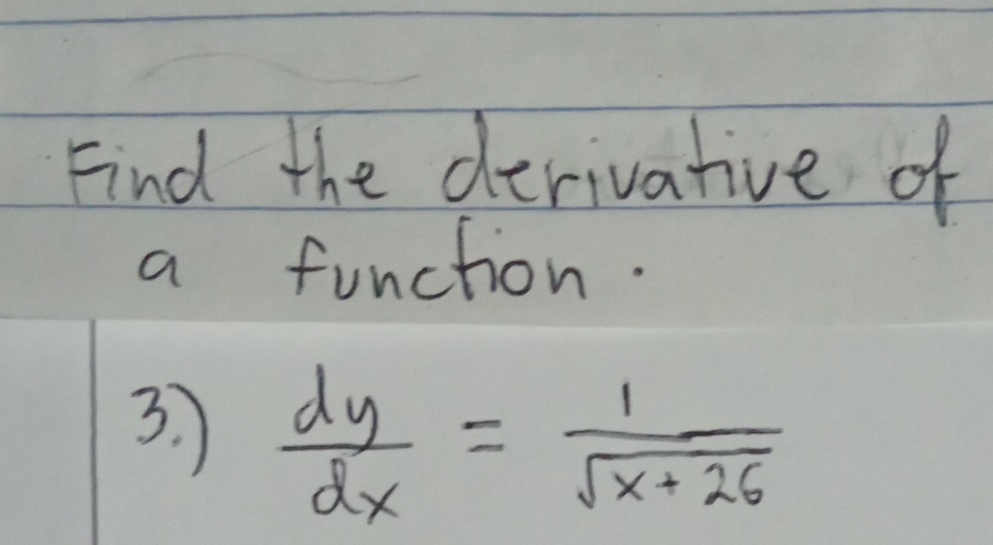 Find the derivative of
a function.
3.) dy/dx = 1/√x+26